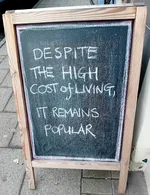 DESPITE
THE HIGH
COST of LIVING,
IT REMAINS
POPULAR